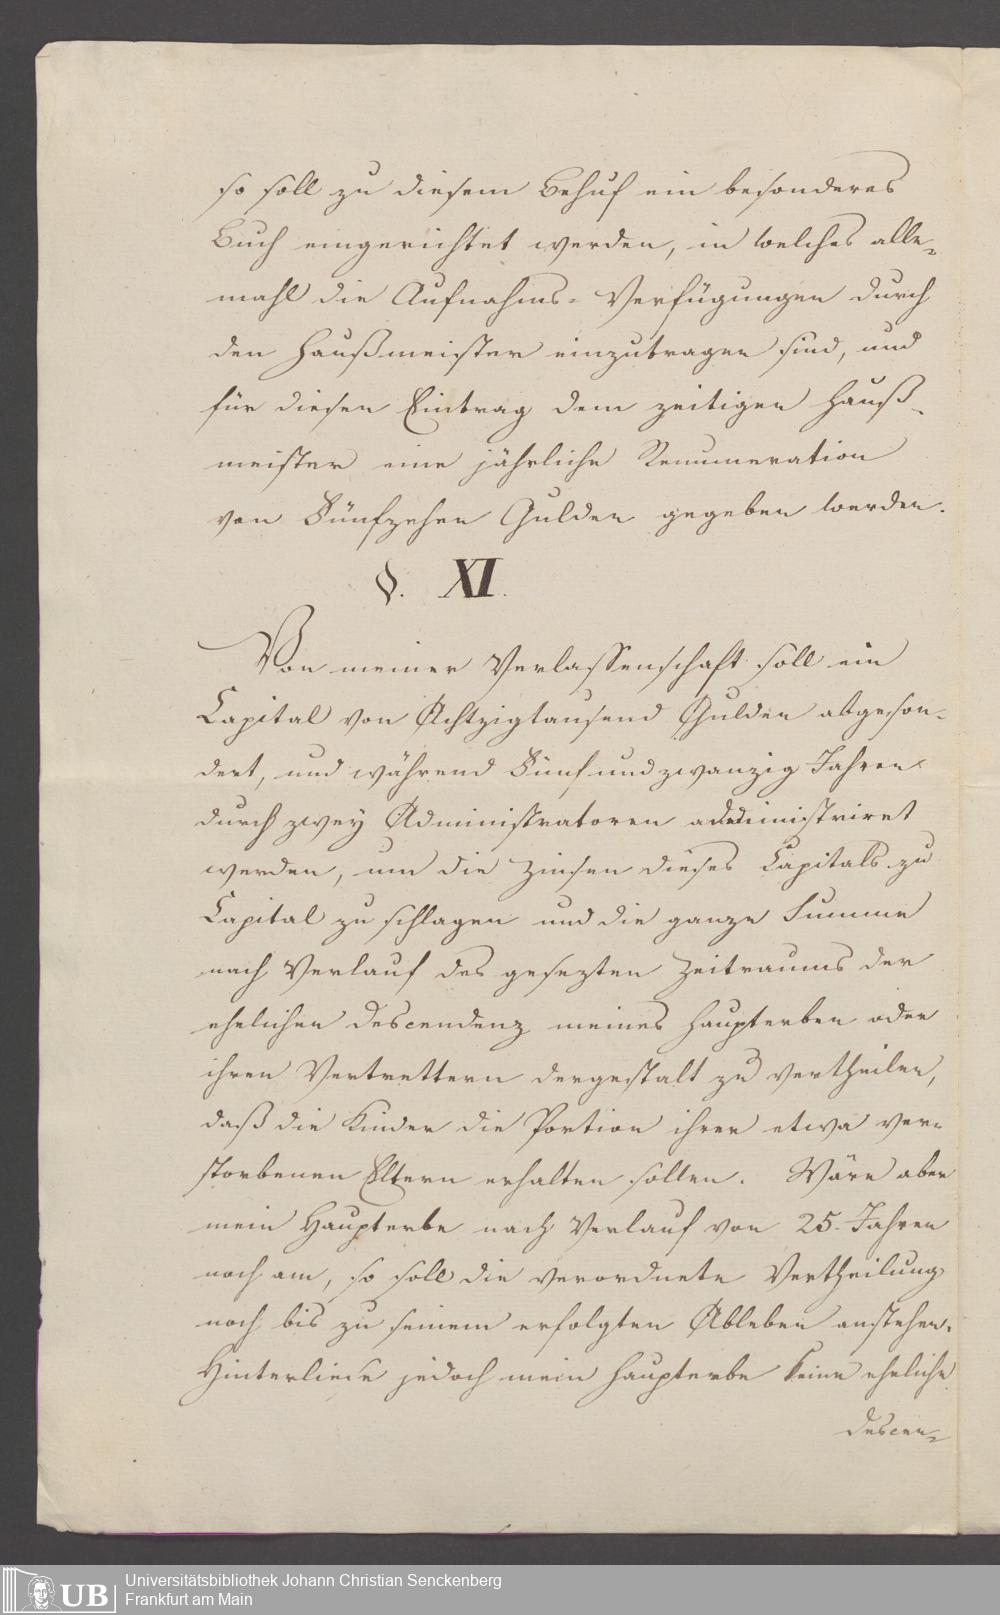 so soll zu diesem Behuf ein besonderes
Buch eingerichtet werden, in welches alle-
mahl die Aufnahms-Verfügungen durch
den Haußmeister einzutragen sind, und
für diesen Eintrag dem zeitigen Hauß-
meister eine jährliche Renumeration
von Fünfzehen Gulden gegeben werden.
§. XI.
Von meiner Verlassenschaft soll ein
Capital von Achtzigtausend Gulden abgeson-
dert, und während Fünf und zwanzig Jahren
durch zwey Administratoren administriret
werden, um die Zinsen dieses Capitals zu
Capital zu schlagen und die ganze Summe
nach Verlauf des gesezten Zeitraums der
ehelichen Descendenz meines Haupterben oder
ihren Vertrettern dergestalt zu vertheilen,
daß die Kinder die Portion ihrer etwa ver-
storbenen Eltern erhalten sollen. Wäre aber
mein Haupterbe nach Verlauf von 25. Jahren
noch am, so soll die verordnete Vertheilung
noch bis zu seinem erfolgten Ableben anstehen.
Hinterließe jedoch mein Haupterbe keine eheliche
Descen-
UB
Universitätsbibliothek Johann Christian Senckenberg
Frankfurt am Main